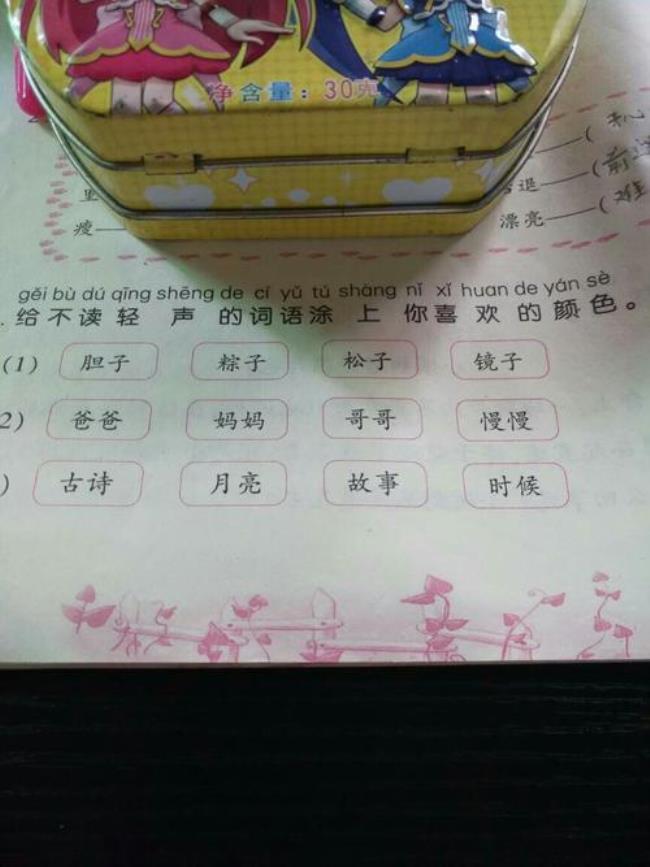 净含量：30克
瘦——
漂亮——(
gěi bù dú qīng shēng de cí yǔ tú shàng nǐ xǐ huan de yán sè
给不读轻声的词语涂上你喜欢的颜色。
(1) 胆子 粽子 松子 镜子
2) 爸爸 妈妈 哥哥 慢慢
) 古诗 月亮 故事 时候